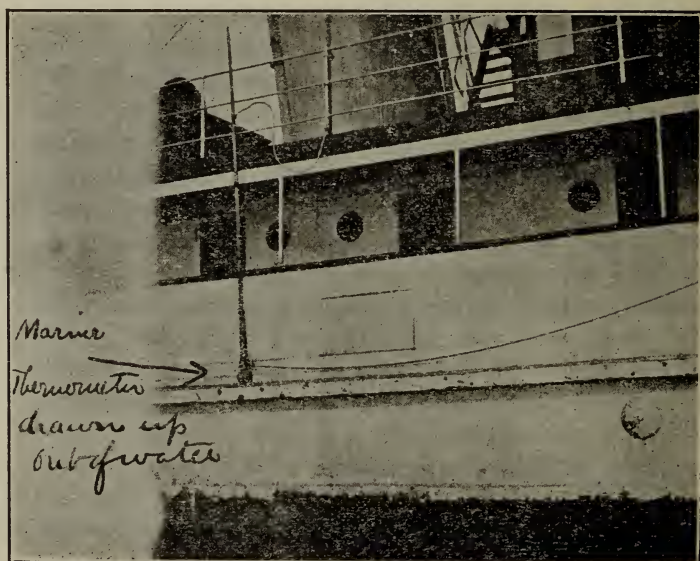 Marine
Thermometer
drawn up
out of water